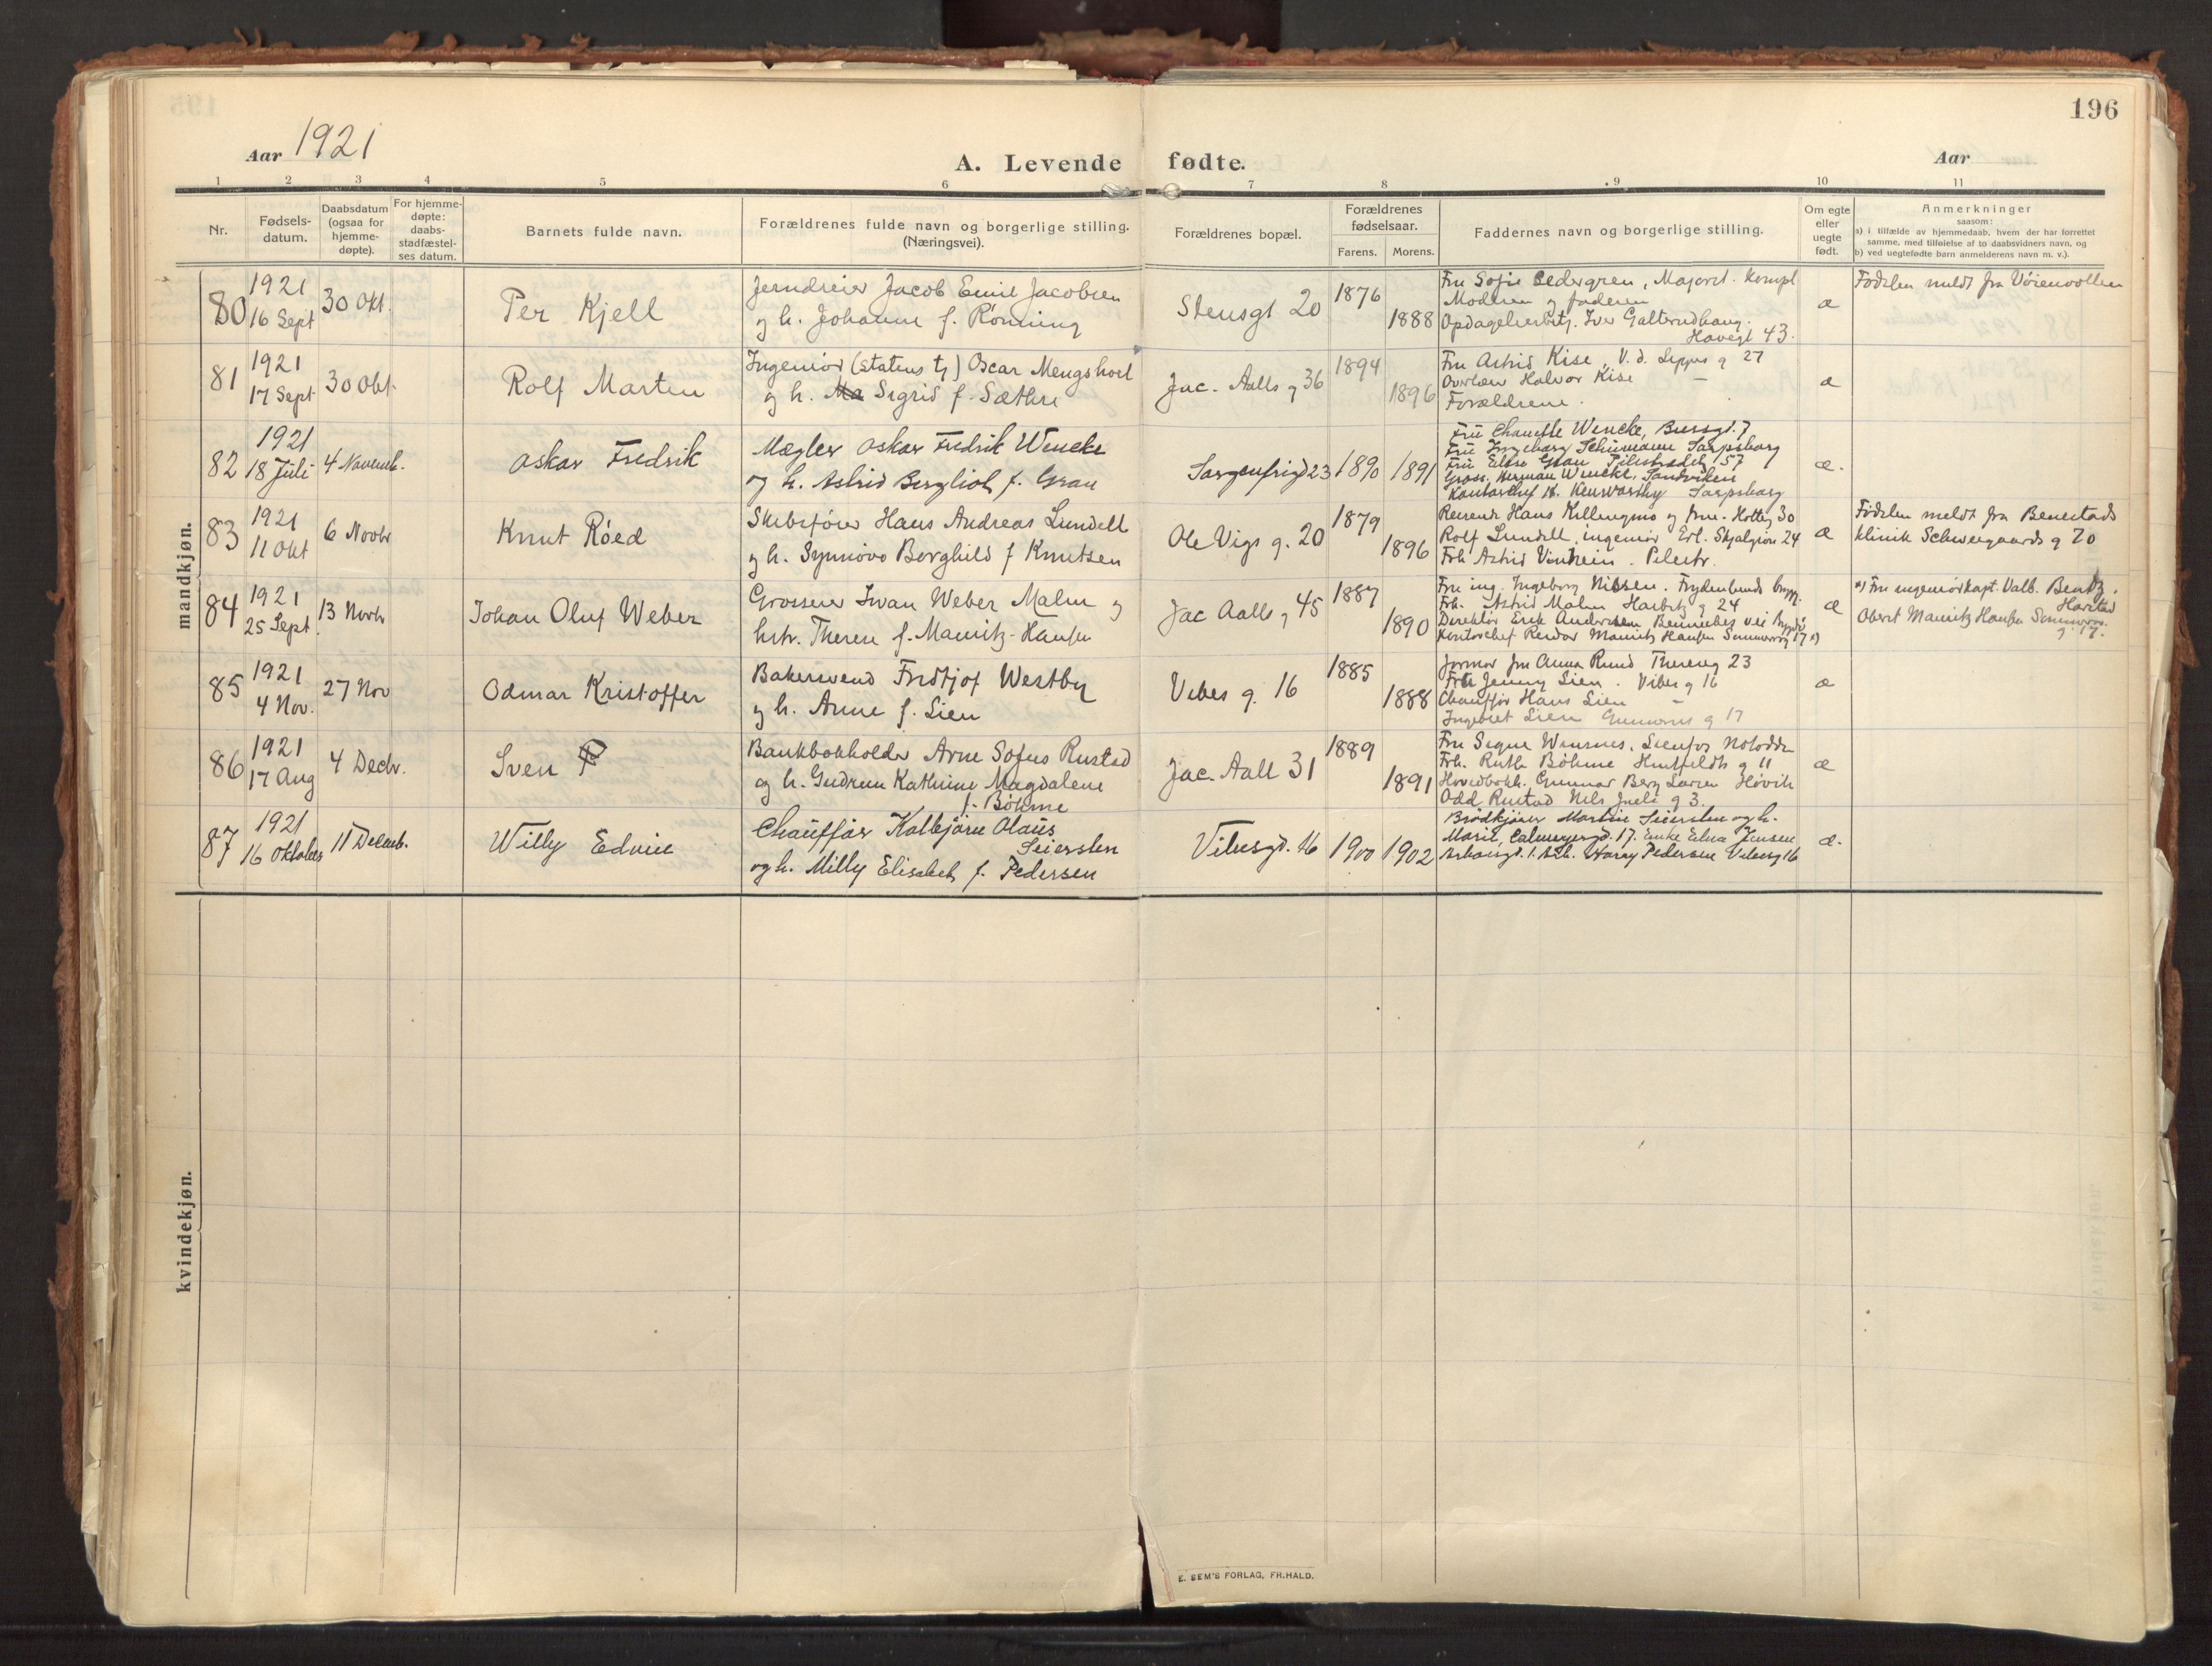 196
Aar 1921
A. Levende fødte.
Aar
1 2 3 4 5 6 7 8 9 10 11
Nr.
Fødsels-
datum.
Daabsdatum
(ogsaa for
hjemme-
døpte).
For hjemme-
døpte:
daabs-
stadfæstel-
ses datum.
Barnets fulde navn.
Forældrenes fulde navn og borgerlige stilling.
(Næringsvei).
Forældrenes bopæl.
Forældrenes
fødselsaar.
Farens. Morens.
Faddernes navn og borgerlige stilling.
Om egte
eller
uegte
født.
Anmerkninger
saasom:
a) i tilfælde av hjemmedaab, hvem der har forrettet
samme, med tilføielse af to daabsvidners navn, og
b) ved uegtefødte barn anmelderens navn m. v.).
mandkjøn.
80
1921
16 Sept
30 Okt.
Per Kjell
Jerndreier Jacob Emil Jacobsen
og h. Johanne f. Rönning
Stensgt 20
1876
1888
Fru Sofie Cedergren, Majorst. Kompl
Moderen og faderen
Opdagelsesbetj. Iver Galterudhaug.
Havegt 43.
æ
Fødslen meldt fra Vöienvolden
81
1921
17 Sept.
30 Okt.
Rolf Marten
Ingeniör (Statens tj) Oscar Mengshoel
og h. Sigrid f. Sæthre
Jac. Aalls g 36
1894
1896
Fru Astrid Kise, V. d. Lippes g 27
Overlær Halvor Kise –
Forældrene.
æ
82
1921
18 Juli
4 Novemb.
Oskar Fredrik
Mægler Oskar Fredrik Wencke
og h. Astrid Bergliot f. Gran
Sorgenfrigd 23
1890
1891
Fru Wencke, 7
Fru Ingeborg Schumann Sarpsborg
Fru Gran Pilestrædet 57
Gross. Herman Wencke, Sandviken
Kontorchef K. Kenworthy Sarpsborg
æ.
83
1921
11 Okt
6 Novbr
Knut Röed
Skibsförer Hans Andreas Lundell
og h. Synnöve Borghild f Knutsen
Ole Vigs g. 20
1879
1896
Reisende Hans Killingmo og frue. 30
Rolf Lundell, ingeniör Erl. Skjalgsöns 24
Frk Astrid . Pilestr.
æ
Födslen meldt fra Benestads
klinik Schweigaards g 70
84
1921
25 Sept.
13 Novbr
Johan Oluf Weber
Grosserer Ivan Weber Malm og
hstr. Therese f. Mauritz-Hansen
Jac Aalls g 45
1887
1890
Fru ing. Ingeborg Nilssen. Frydenlunds brygg.
Frk. Astrid Malm Harbitz g 24
Direktör Erik Andersen Bennebes vei Bygdö
Kontorchef Reidar Mauritz Hansen 17 *)
æ
*) Fru ingeniörkapt. Valb. Bentz.
Harstad
Oberst Mauritz Hansen
g 17.
85
1921
4 Nov.
27 Nov
Odmar Kristoffer
Bakersvend Fridtjof Westby
og h. Anne f. Lien
Vibes g. 16
1885
1888
Farmor fru Anna Ruud Thereseg 23
Frk Jenny Lien. Vibes g 16
Chaufför Hans Lien –
Ingebret Lien g 17
æ
86
1921
17 Aug
4 Decbr.
Sven
Bankbokholder Arne Sofus Rustad
og h. Gudrun Kathrine Magdalene
f. Böhme
Jac. Aall 31
1889
1891
Fru Signe Winsnes. Lienfos Notodden
Frk. Ruth Böhme Huitfeldts g 11
Hovedbokh. Gunnar Berg Larsen Hövik
Odd Rustad Niels Juels g 3.
æ
87
1921
16 Oktober
11 Decemb.
Willy Edvin
Chauffør Kolbjørn Olaus
Seiersten
og h. Milly Elisabeth f. Pedersen
Vibesgd. 16
1900
1902
Brødkjører Martin Seiersten og h.
Marie, Calmeyergd. 17. Enke Edna Jensen
. 1. Arb. Harry Pedersen Vibesg 16
æ.
kvindekjøn.
E. SEM'S FORLAG, FR.HALD.